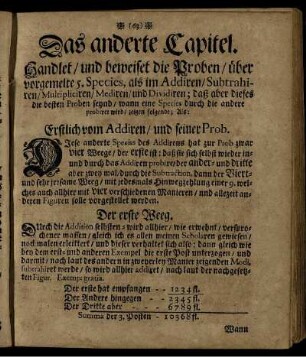 (63)
Das anderte Capitel.
Handlet/ und beweiset die Proben/ über
vorgemelte 5. Species, als im Addiren/ Subtrahi-
ren/ Multipliciren/ Mediren und Dividiren; daß aber dieses
die besten Proben seynd/ wann eine Species durch die andere
probirt wird/ zeigen folgende; Als:
Erstlich vom Addiren/ und seiner Prob.
Diese anderte Species des Addirens hat zur Prob zwar
vier Weege/ der erste ist: daß sie sich selbst wieder in-
und durch das Addiren probire/ der ander- und dritte
aber zwey mal durch die Subtraction, dann der Vierte
und sehr seltsame Weeg/ mit jedesmals Hinwegzehlung einer 9. wel-
ches auch allhier mit vier verschiedenen Manieren/ und allezeit an-
deren Figuren solle vorgestellet werden.
Der erste Weeg.
Durch die Addition selbsten/ wird allhier/ wie erwehnt/ verspro-
chener massen/ gleich ich es allen meinen Scholaren gewisen/
noch mal erleutert/ und dieser verhaltet sich also: dann gleich wie
bey dem erst- und anderen Exempel die erste Post
und durch nach laut des andern in zweyerley Manier zeigenden Modi,
subtrahiret werde/ so wird allhier addiret/ nach laut der nachgesetz-
ten Figur. Exempli gratiâ.
Der erste hat empfangen - - 1234 fl.
Der Andere hingegen - - 2345 fl.
Der Dritte aber - - 6789 fl.
Somma der 3. Posten - 10368 fl.
Wann